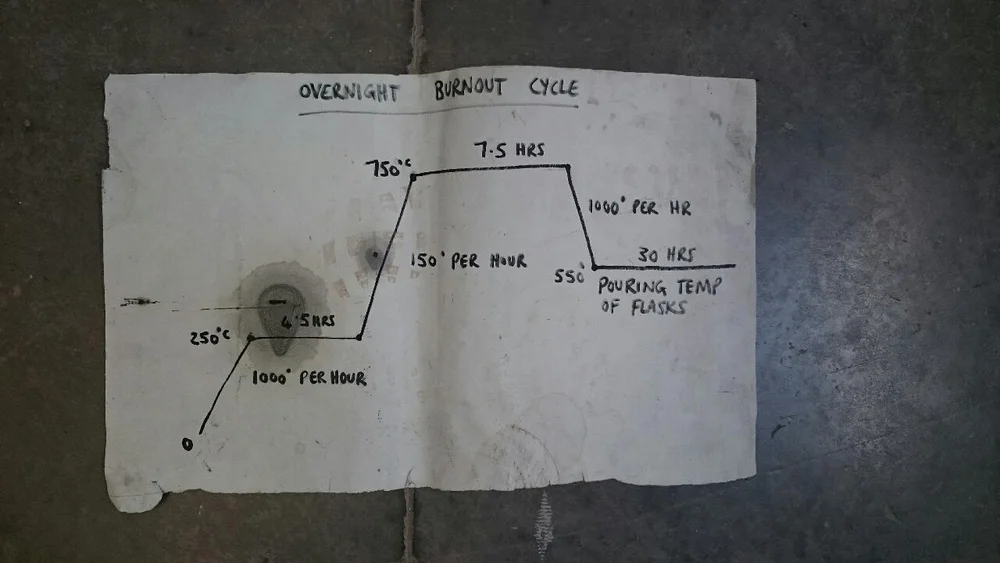 OVERNIGHT BURNOUT CYCLE
7.5 HRS
750°C
1000° PER HR
150° PER HOUR
30 HRS
550°
POURING TEMP
OF FLASKS
4.5 HRS
250°C
1000° PER HOUR
0